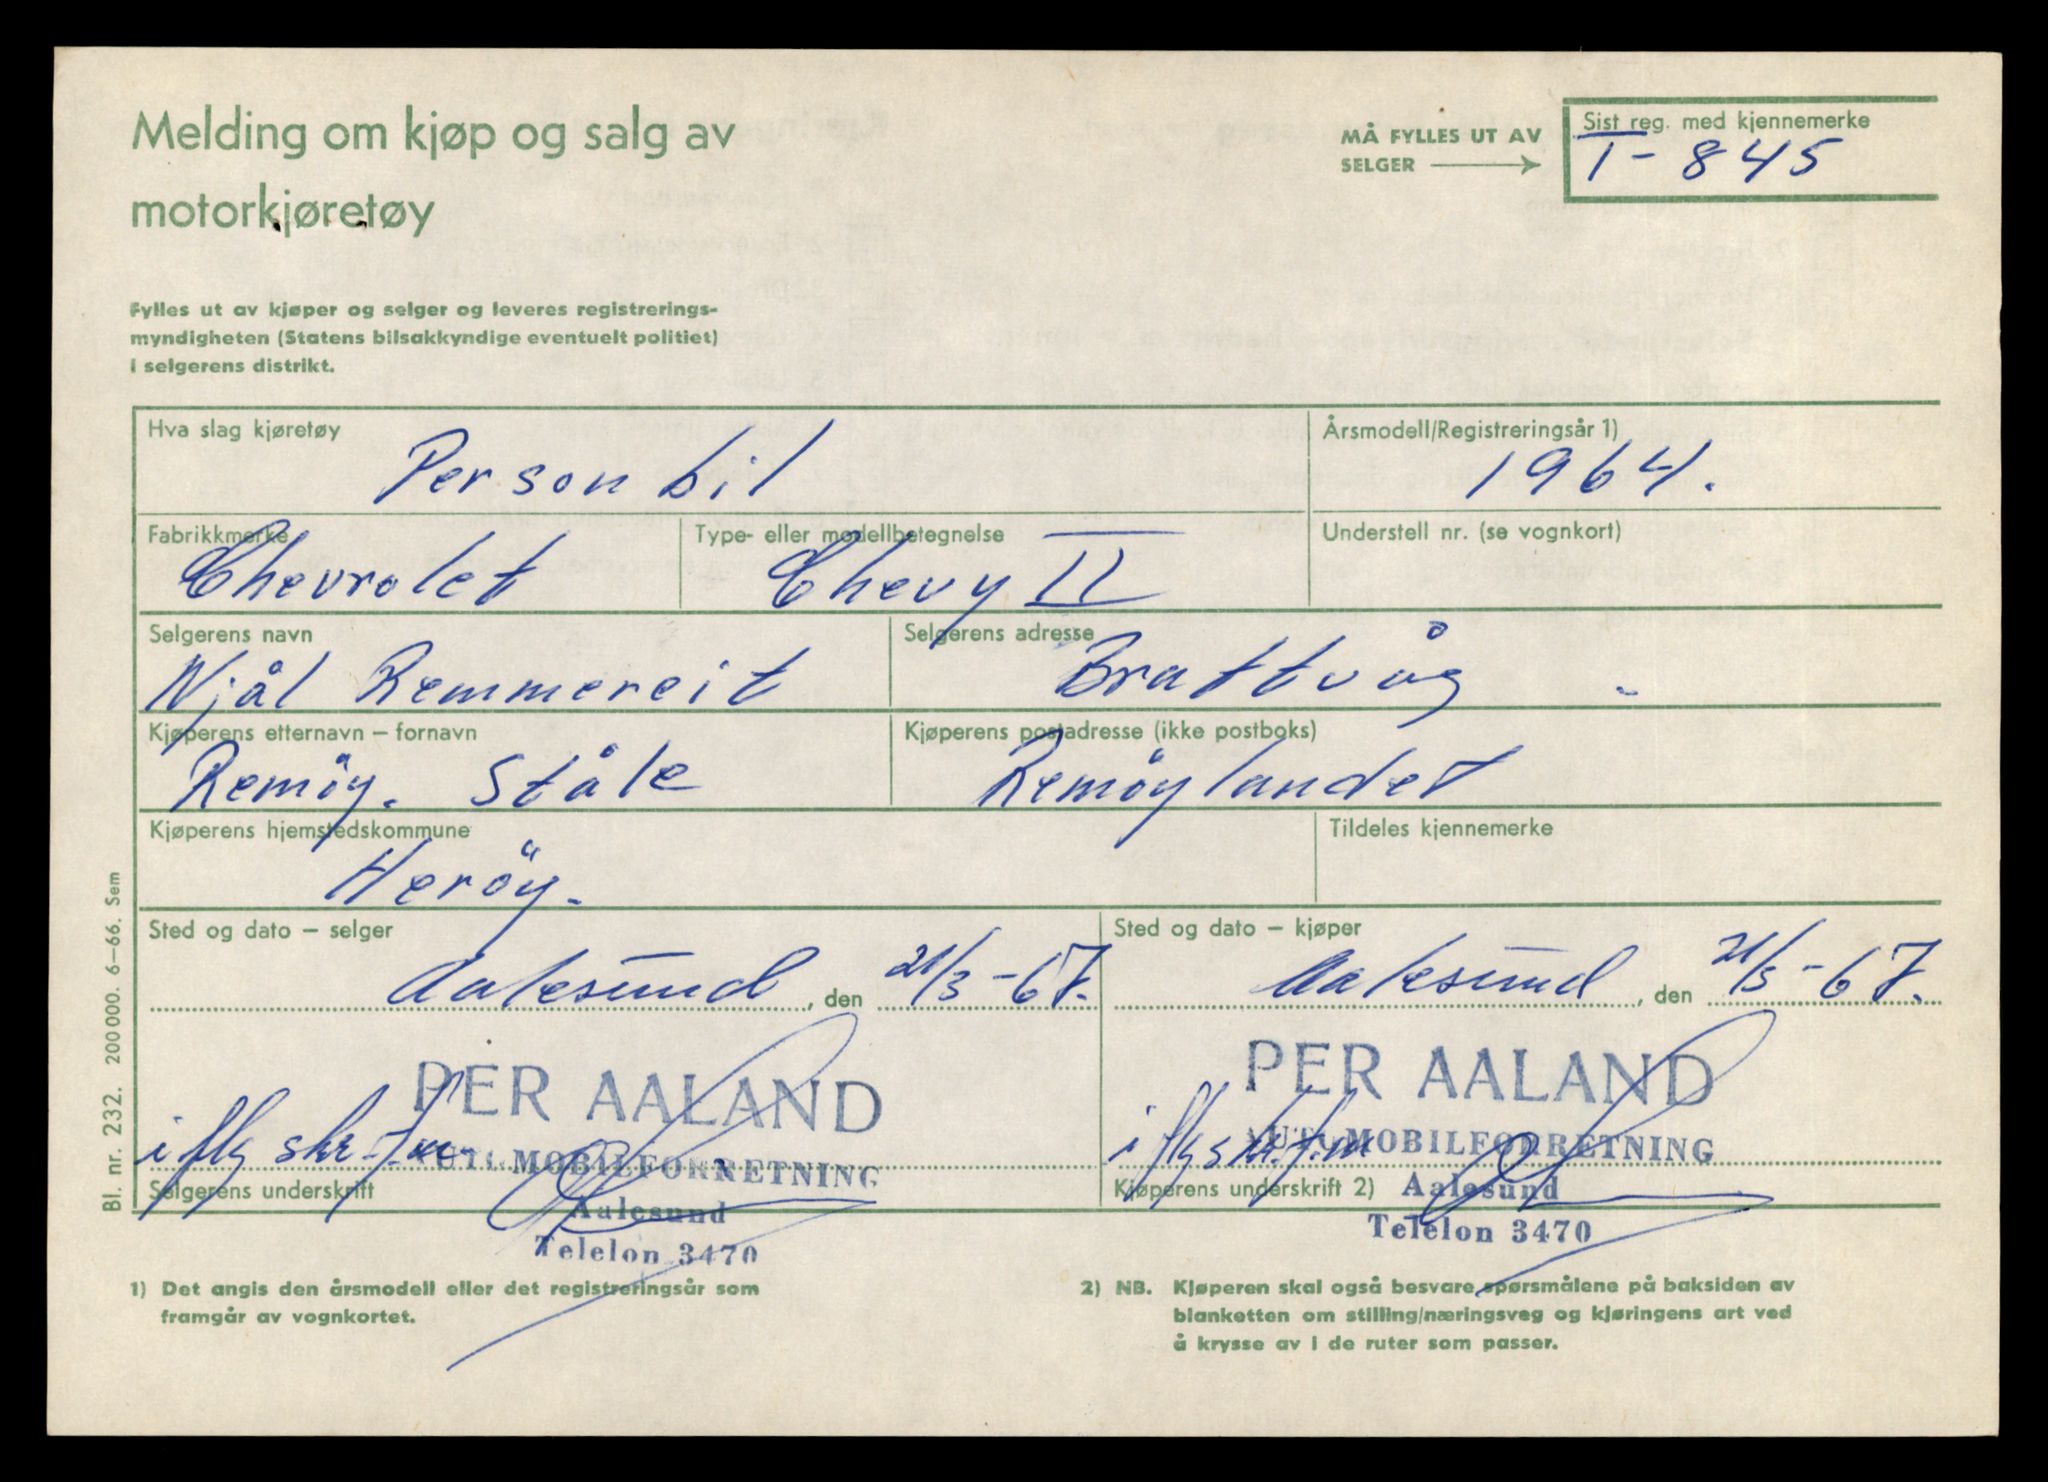 Melding om kjøp og salg av
motorkjøretøy
MÅ FYLLES UT AV
SELGER
Sist reg. med kjennemerke
T-845
Fylles ut av kjøper og selger og leveres registrerings-
myndigheten (Statens bilsakkyndige eventuelt politiet)
i selgerens distrikt.
Hva slag kjøretøy
Personbil
Årsmodell/Registreringsår 1)
1964.
Fabrikkmerke
Chevrolet
Type- eller modellbetegnelse
Chevy II
Understell nr. (se vognkort)
Selgerens navn
Njål Remmereit
Selgerens adresse
Brattvåg
Kjøperens etternavn – fornavn
Remöy. Ståle
Kjøperens postadresse (ikke postboks)
Remöylandet
Kjøperens hjemstedskommune
Heröy.
Tildeles kjennemerke
Sted og dato – selger
Aalesund, den 21/3-67.
Sted og dato – kjøper
Aalesund, den 21/3-67.
PER AALAND
AUTOMOBILFORRETNING
Aalesund
Telefon 3470
iflg skr. f.m
Selgerens underskrift
PER AALAND
AUTOMOBILFORRETNING
Aalesund
Telefon 3470
iflg skr. f.m
Kjøperens underskrift 2)
1) Det angis den årsmodell eller det registreringsår som
framgår av vognkortet.
2) NB. Kjøperen skal også besvare spørsmålene på baksiden av
blanketten om stilling/næringsveg og kjøringens art ved
å krysse av i de ruter som passer.
Bl. nr. 232. 200 000. 6–66. Sem